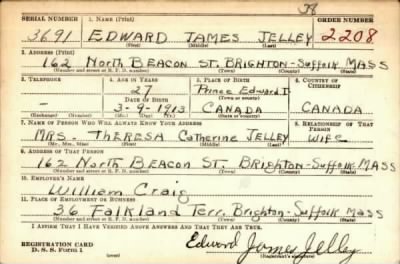 SERIAL NUMBER 1. NAME (Print) ORDER NUMBER
3691 EDWARD JAMES JELLEY 2208
(First) (Middle) (Last)
2. ADDRESS (Print)
162 North BEACON ST. BRIGHTON-Suffolk MASS
(Number and street or R. F. D. number) (Town) (County) (State)
3. TELEPHONE 4. AGE IN YEARS 5. PLACE OF BIRTH 6. COUNTRY OF CITIZENSHIP
27 Prince Edward I.
DATE OF BIRTH (Town or county)
- 3-9-1913 CANADA CANADA
(Exchange) (Number) (Mo.) (Day) (Yr.) (State or country)
7. NAME OF PERSON WHO WILL ALWAYS KNOW YOUR ADDRESS 8. RELATIONSHIP OF THAT PERSON
MRS. THERESA Catherine JELLEY WIFE
(Mr., Mrs., Miss) (First) (Middle) (Last)
9. ADDRESS OF THAT PERSON
162 North BEACON ST. Brighton-Suffolk MASS
(Number and street or R. F. D. number) (Town) (County) (State)
10. EMPLOYER'S NAME
William Craig
11. PLACE OF EMPLOYMENT OR BUSINESS
36 Falkland Terr. Brighton-Suffolk Mass
(Number and street or R. F. D. number) (Town) (County) (State)
I AFFIRM THAT I HAVE VERIFIED ABOVE ANSWERS AND THAT THEY ARE TRUE.
REGISTRATION CARD
D. S. S. Form 1 Edward James Jelley
(Registrant's signature)